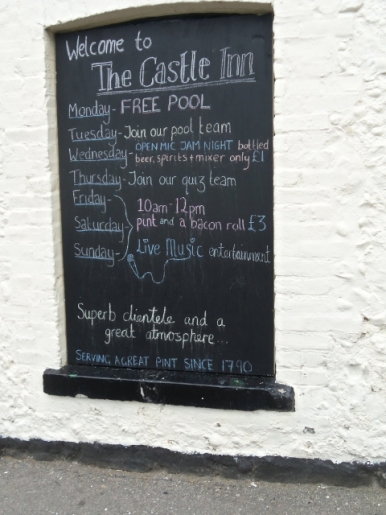 Welcome to
The Castle Inn
Monday - FREE POOL
Tuesday - Join our pool team
Wednesday - OPEN MIC JAM NIGHT bottled
beer, spirits + mixer only £1
Thursday - Join our quiz team
Friday -
10am - 12pm
Saturday - pint and a bacon roll £3
Sunday - Live Music entertainment
Superb clientele and a
great atmosphere...
SERVING A GREAT PINT SINCE 1790